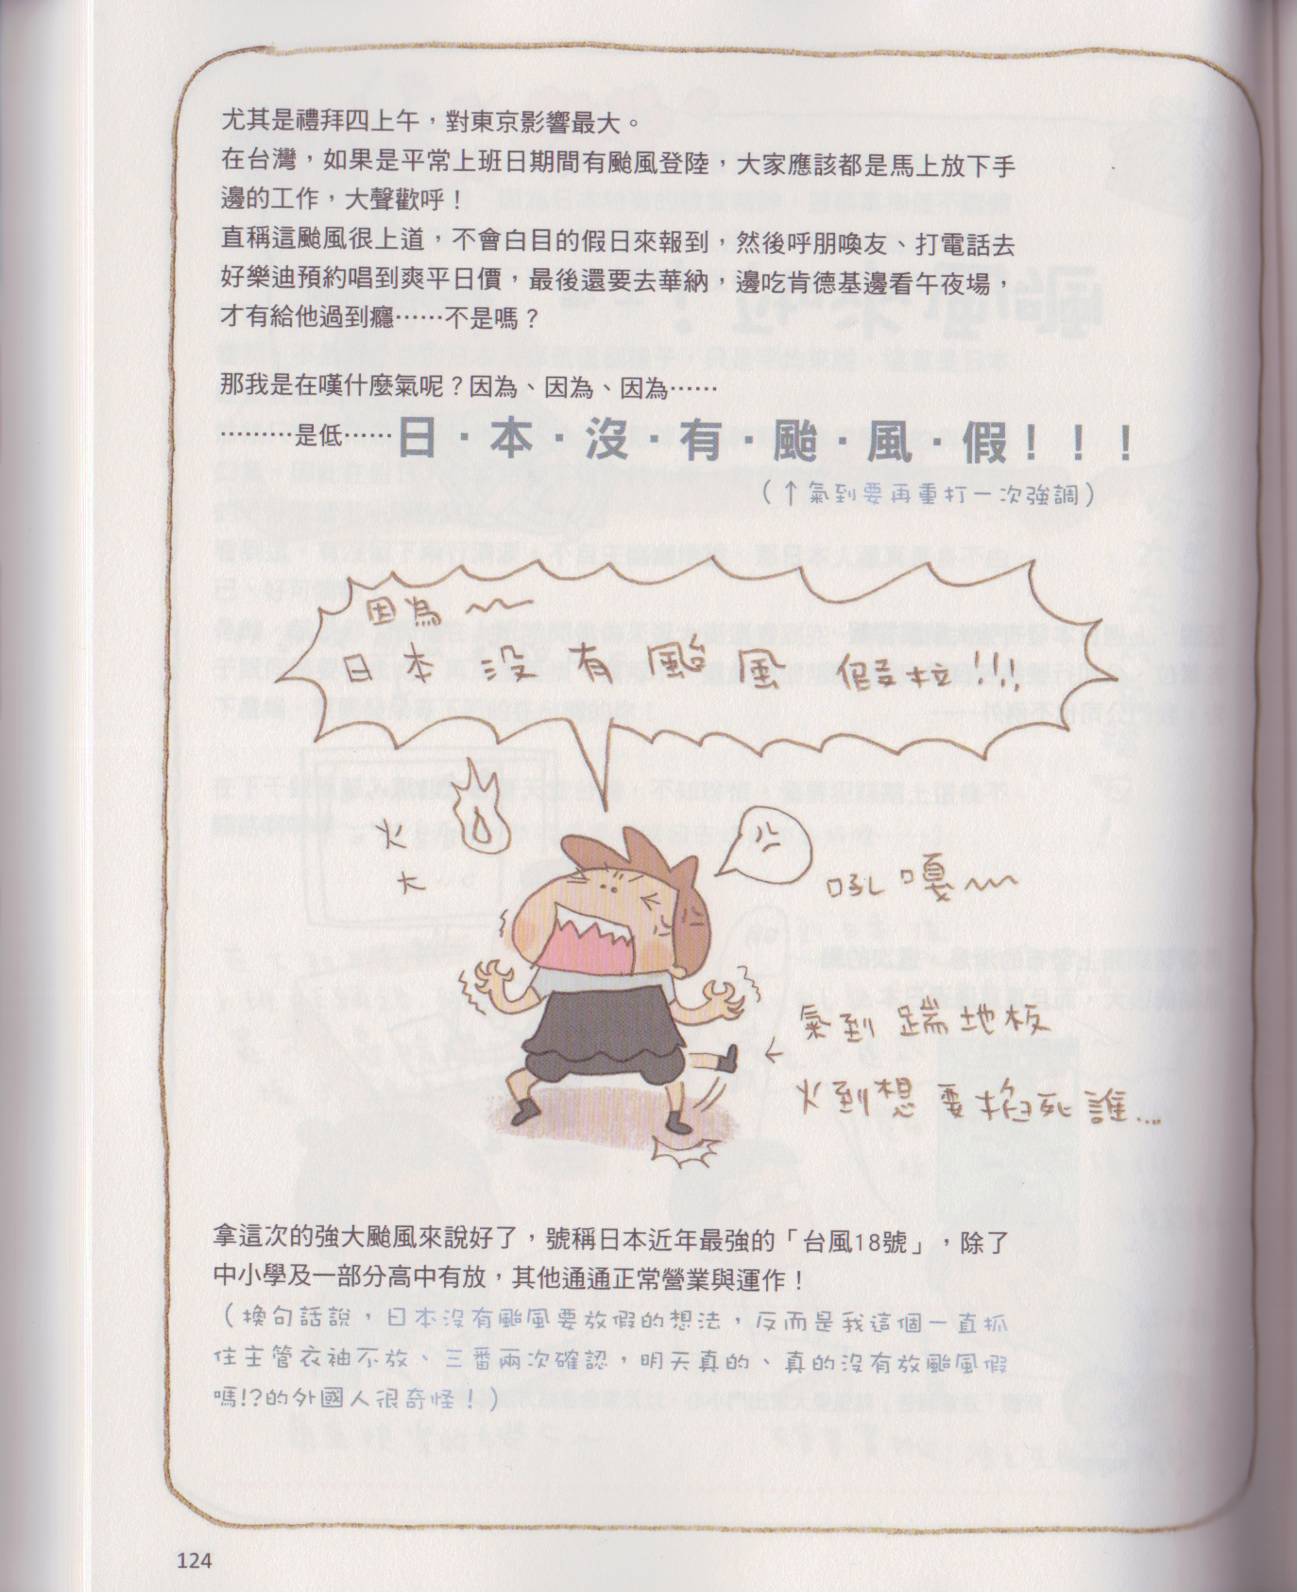 尤其是禮拜四上午，對東京影響最大。
在台灣，如果是平常上班日期間有颱風登陸，大家應該都是馬上放下手
邊的工作，大聲歡呼！
直稱這颱風很上道，不會白目的假日來報到，然後呼朋喚友、打電話去
好樂迪預約唱到爽平日價，最後還要去華納，邊吃肯德基邊看午夜場，
才有給他過到癮……不是嗎？
那我是在嘆什麼氣呢？因為、因為、因為……
………是低……日．本．沒．有．颱．風．假！！！
（↑氣到要再重打一次強調）
因為～～
日本沒有颱風假拉!!!
火
大
吼嘎～～
氣到踹地板
←
火到想要掐死誰...
拿這次的強大颱風來說好了，號稱日本近年最強的「台風18號」，除了
中小學及一部分高中有放，其他通通正常營業與運作！
（換句話說，日本沒有颱風要放假的想法，反而是我這個一直抓
住主管衣袖不放、三番兩次確認，明天真的、真的沒有放颱風假
嗎!?的外國人很奇怪！）
124